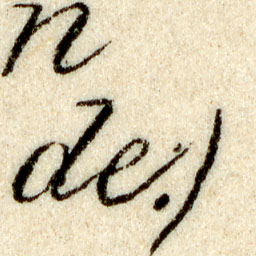 n
de.)